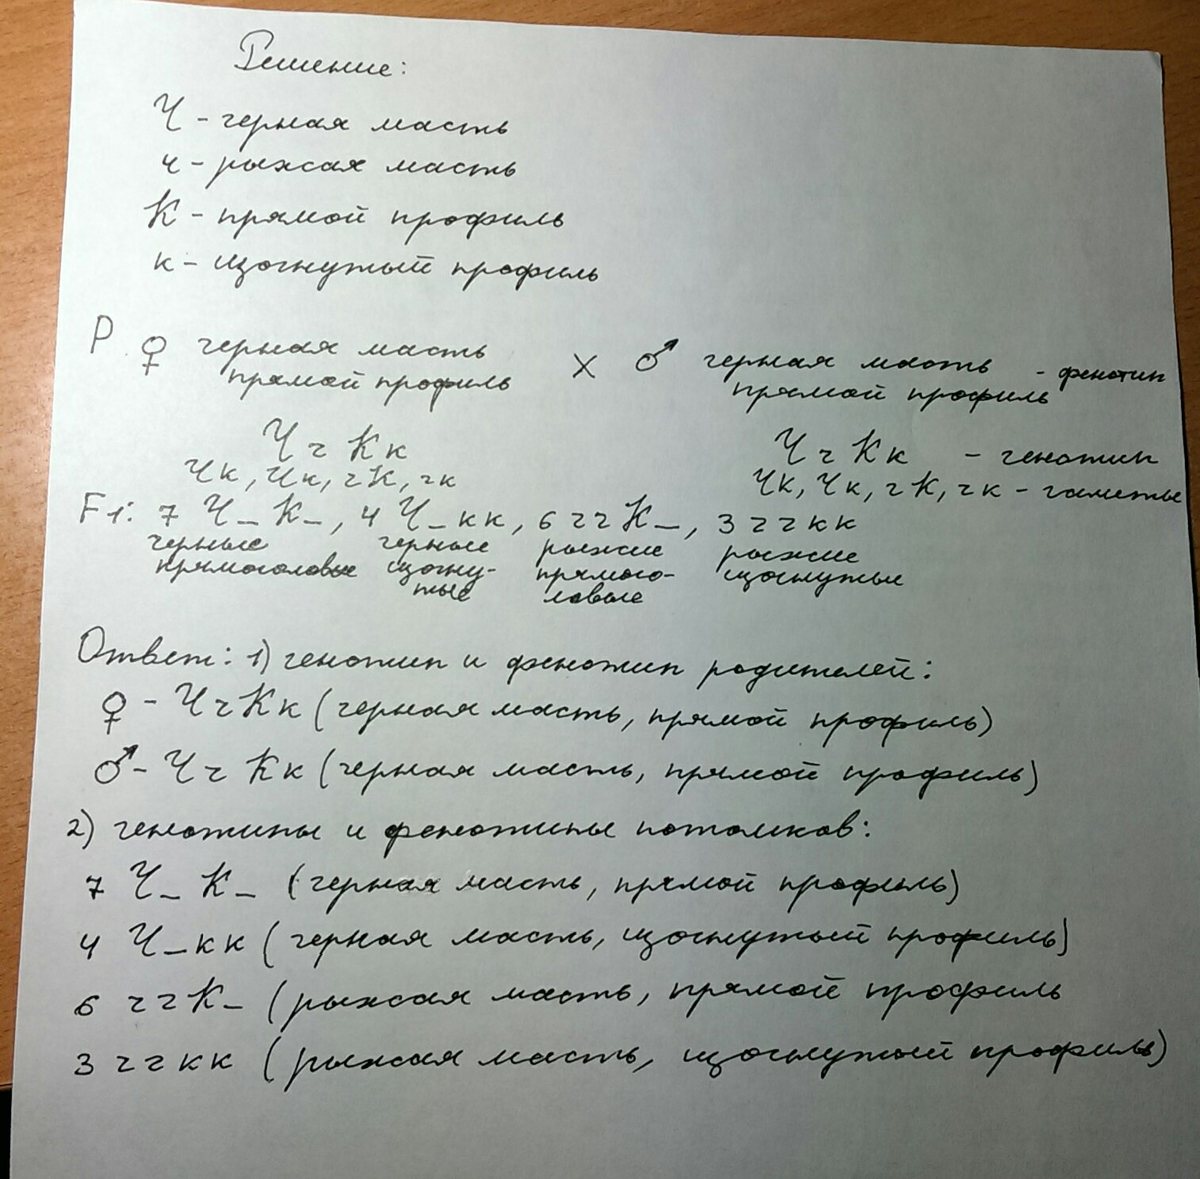 Решение:
Ч - черная масть
ч - рыжая масть
К - прямой профиль
к - изогнутый профиль
Р ♀ черная масть × ♂ черная масть - фенотип
прямой профиль прямой профиль
Ч ч К к Ч ч К к - генотип
Чк, Чк, чК, чк Чк, Чк, чК, чк - гаметы
F1: 7 Ч_ К_, 4 Ч_кк, 6 ччК_, 3 ччкк
черные черные рыжие рыжие
прямоголовые изогну- прямого- изогнутые
тые ловые
Ответ: 1) генотип и фенотип родителей:
♀ - ЧчКк (черная масть, прямой профиль)
♂ - Чч Кк (черная масть, прямой профиль)
2) генотипы и фенотипы потомков:
7 Ч_ К_ (черная масть, прямой профиль)
4 Ч_кк (черная масть, изогнутый профиль)
6 ччК_ (рыжая масть, прямой профиль
3 ччкк (рыжая масть, изогнутый профиль)